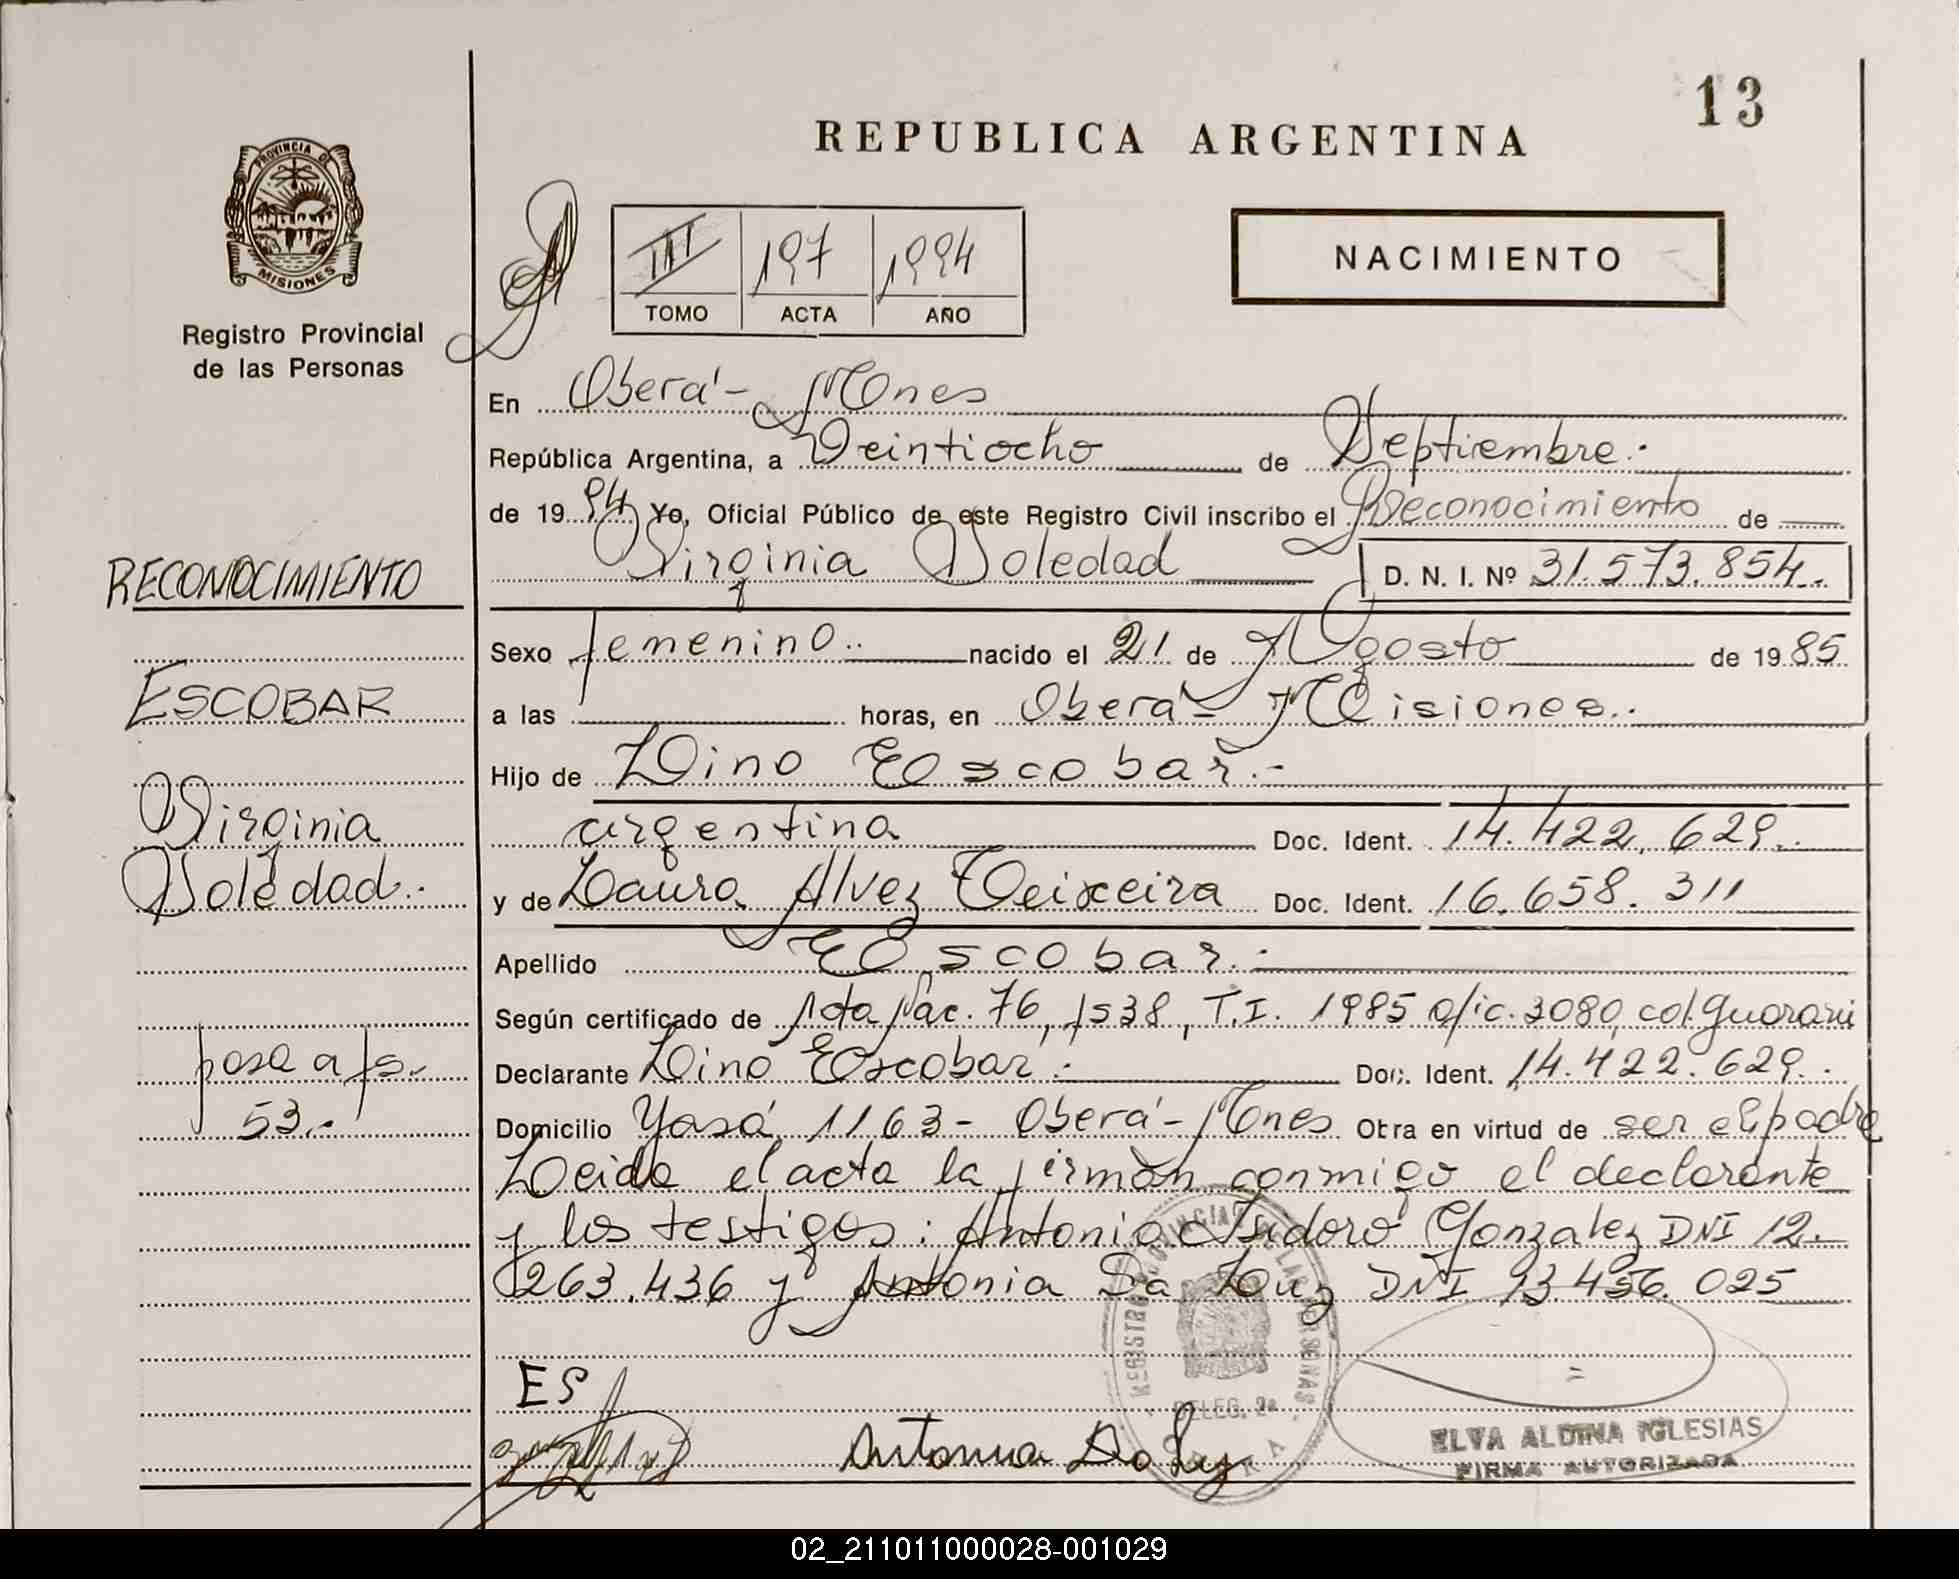 13
REPUBLICA ARGENTINA
PROVINCIA DE
MISIONES
Registro Provincial
de las Personas
III 197 1994
TOMO ACTA AÑO
NACIMIENTO
En Oberá - Mnes
República Argentina, a Veintiocho de Septiembre.
de 19 94 Yo, Oficial Público de este Registro Civil inscribo el Reconocimiento de
Virginia Soledad D. N. I. Nº 31.573.854.
RECONOCIMIENTO
Sexo femenino.. nacido el 21 de Agosto de 19 85
ESCOBAR
a las horas, en Oberá - Misiones.
Hijo de Lino Escobar.-
Virginia
argentina Doc. Ident. 14.422.629.
Soledad.
y de Laura Alvez Teixeira Doc. Ident. 16.658.311
Apellido Escobar.-
Según certificado de Acta Nac. 76, fs 38, T.I. 1985 ofic. 3080, col. Guarani
pasa a fs.
Declarante Lino Escobar.- Doc. Ident. 14.422.629.
53.-
Domicilio Yasá 1163 - Oberá - Mnes Obra en virtud de ser el padre
Leida el acta la firman conmigo el declarante
y los testigos: Antonio Isidoro Gonzalez DNI 12.
263.436 y Antonia Da Luz DNI 13.456.025
REGISTRO PROVINCIAL DE LAS PERSONAS
DELEG. 2ª
ES
Antonia Da Luz
ELVA ALDINA IGLESIAS
FIRMA AUTORIZADA
02_211011000028-001029